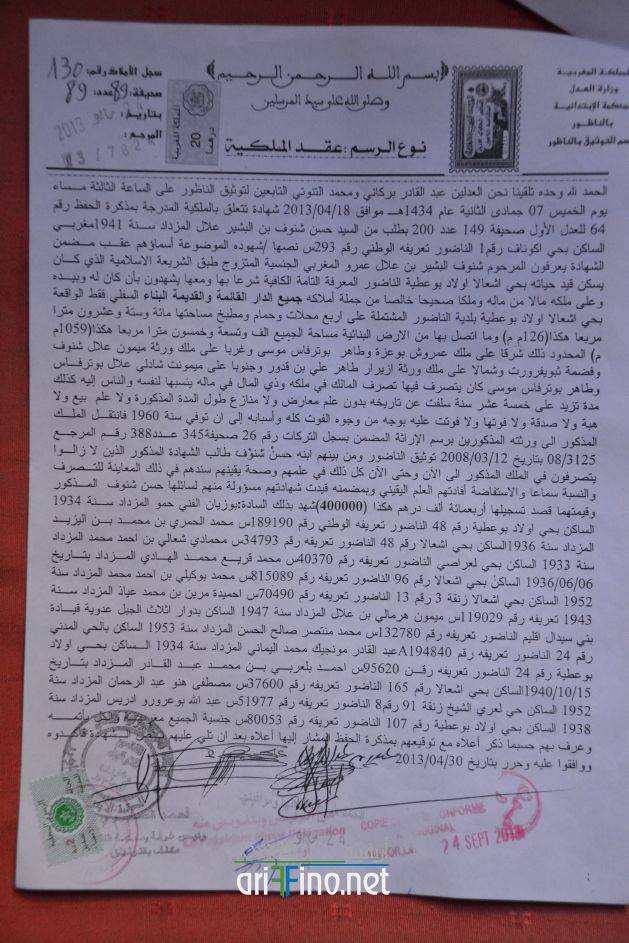 المملكة المغربية
وزارة العدل
المحكمة الإبتدائية
بالناظور
قسم التوثيق بالناظور
بسم الله الرحمن الرحيم
وصلى الله على سيد المرسلين
نوع الرسم : عقد الملكية
سجل الأملاك رقم: 130
صحيفة: 89 عدد: 89
بتاريخ:
2013
المرجع:
المملكة المغربية
20
درهما
الحمد لله وحده تلقينا نحن العدلين عبد القادر بركاني ومحمد التنوتي التابعين لتوثيق الناظور على الساعة الثالثة مساء
يوم الخميس 07 جمادى الثانية عام 1434هـ موافق 2013/04/18 شهادة تتعلق بالملكية المدرجة بمذكرة الحفظ رقم
64 للعدل الأول صحيفة 149 عدد 200 بطلب من السيد حسن شنوف بن البشير علال المزداد سنة 1941مغربي
الساكن بحي اكوناف رقم1 الناضور تعريفه الوطني رقم 293س نصها /شهوده الموضوعة أسماؤهم عقب مضمن
الشهادة يعرفون المرحوم شنوف البشير بن علال عمرو المغربي الجنسية المتزوج طبق الشريعة الاسلامية الذي كان
يسكن قيد حياته بحي اشعالا اولاد بوعطية الناضور المعرفة التامة الكافية شرعا بها ومعها يشهدون بأن كان له وبيده
وعلى ملكه مالا من ماله وملكا صحيحا خالصا من جملة أملاكه جميع الدار القائمة والقديمة البناء السفلي فقط الواقعة
بحي اشعالا اولاد بوعطية بلدية الناضور المشتملة على اربع محلات وحمام ومطبخ مساحتها مائة وستة وعشرون مترا
مربعا هكذا(126م م) وما اتصل بها من الارض البنائية مساحة الجميع الف وتسعة وخمسون مترا مربعا هكذا(1059م
م) المحدود ذلك شرقا على ملك عمروش بوعزة وطاهر بوترفاس موسى وغربا على ملك ورثة ميمون علال شنوف
وفضمة تبويفرورت وشمالا على ملك ورثة ازيرار طاهر علي بن قدور وجنوبا على ميمونت شادلي علال بوترفاس
وطاهر بوترفاس موسى كان يتصرف فيها تصرف المالك في ملكه وذي المال في ماله ينسبها لنفسه والناس إليه كذلك
مدة تزيد على خمسة عشر سنة سلفت عن تاريخه بدون علم معارض ولا منازع طول المدة المذكورة ولا علم بيع ولا
هبة ولا صدقة ولا فوتها ولا فوتت عليه بوجه من وجوه الفوت كله وأسبابه إلى ان توفي سنة 1960 فانتقل الملك
المذكور الى ورثته المذكورين برسم الإراثة المضمن بسجل التركات رقم 26 صحيفة345 عدد388 رقم المرجع
08/3125 بتاريخ 2008/03/12 توثيق الناضور ومن بينهم ابنه حسن شنوف طالب الشهادة المذكور الذين لا زالوا
يتصرفون في الملك المذكور الى الآن وحتى الآن كل ذلك في علمهم وصحة يقينهم سندهم في ذلك المعاينة للتصرف
والنسبة سماعا والاستفاضة أفادتهم العلم اليقيني وبمضمنه قيدت شهادتهم مسؤولة منهم لسائلها حسن شنوف المذكور
وقيمتهما قصد تسجيلها أربعمائة ألف درهم هكذا (400000)شهد بذلك السادة:بوزيان الفني حمو المزداد سنة 1934
الساكن بحي اولاد بوعطية رقم 48 الناضور تعريفه الوطني رقم 189190س محمد الحمري بن محمد بن اليزيد
المزداد سنة 1936الساكن بحي اشعالا رقم 48 الناضور تعريفه رقم 34793س محمادي شعالي بن احمد محمد المزداد
سنة 1933 الساكن بحي لعراصي الناضور تعريفه رقم 40370س محمد قريع محمد الهادي المزداد بتاريخ
1936/06/06 الساكن بحي اشعالا رقم 96 الناضور تعريفه رقم 815089س محمد بوكيلي بن احمد محمد المزداد
1952 الساكن بحي اشعالا زنقة 3 رقم 13 الناضور تعريفه رقم 70490س احميدة مرين بن محمد عياذ المزداد سنة
1943 تعريفه رقم 119029س ميمون هرمالي بن علال المزداد سنة 1947 الساكن بدوار اثلاث الجبل عدوية قيادة
بني سيدال اقليم الناضور تعريفه رقم 132780س محمد منتصر صالح الحسن المزداد سنة 1953 الساكن بالحي المدني
رقم 24 الناضور تعريفه رقم A194840عبد القادر مونجيك محمد اليماني المزداد سنة 1934 الساكن بحي اولاد
بوعطية رقم 24 الناضور تعريفه رقن 95620س احمد بلعربي بن محمد عبد القادر المزداد بتاريخ
1940/10/15الساكن بحي اشعالا رقم 165 الناضور تعريفه رقم 37600س مصطفى هنو عبد الرحمان المزداد سنة
1952 الساكن حي لعري الشيخ زنقة 91 رقم8 الناضور تعريفه رقم 51977س عبد الله بوعرورو ادريس المزداد سنة
1938 الساكن بحي اولاد بوعطية رقم 107 الناضور تعريفه رقم 80053س جنسية الجميع مغربية والكل بأتمه
وعرف بهم حسبما ذكر أعلاه مع توقيعهم بمذكرة الحفظ المشار إليها أعلاه بعد ان تلي عليهم الشهادة فأكدوه
ووافقوا عليه وحرر بتاريخ 2013/04/30
COPIE CONFORME
ORIGINAL
24 SEPT 2013
ariFFino.net